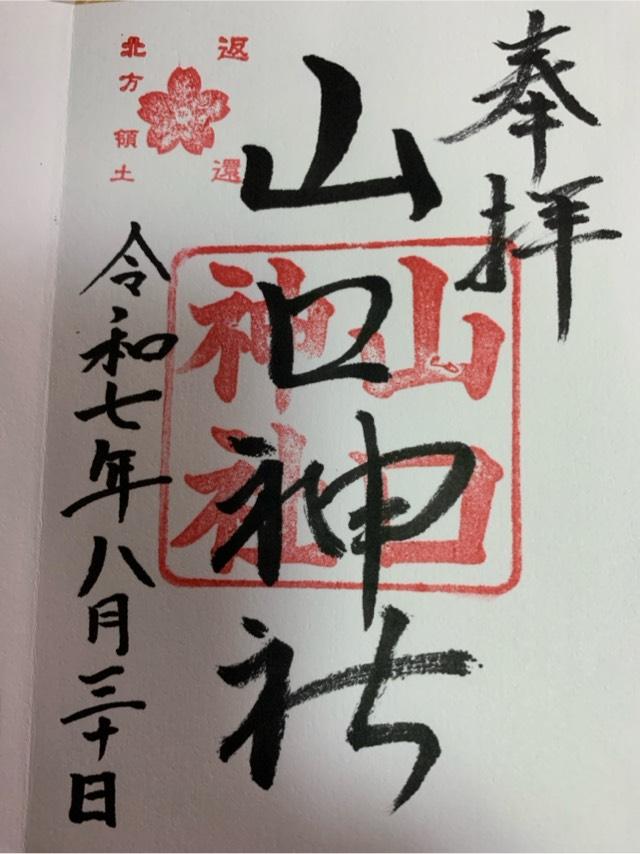 奉拝
返還
山口神社
山口
神社
北方領土
令和七年八月三十日